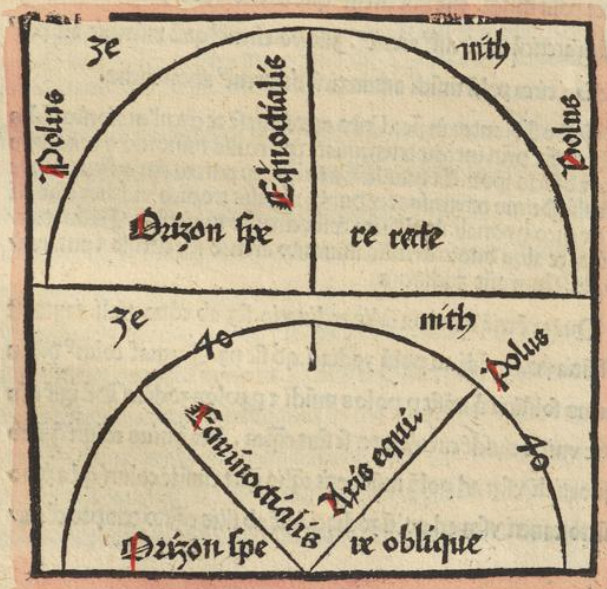 ze nith
Polus
Eqinoctialis
Polus
Orizon spe re recte
ze nith
40
Polus
Eqninoctialis
Axis equi.
40
Orizon spe re oblique